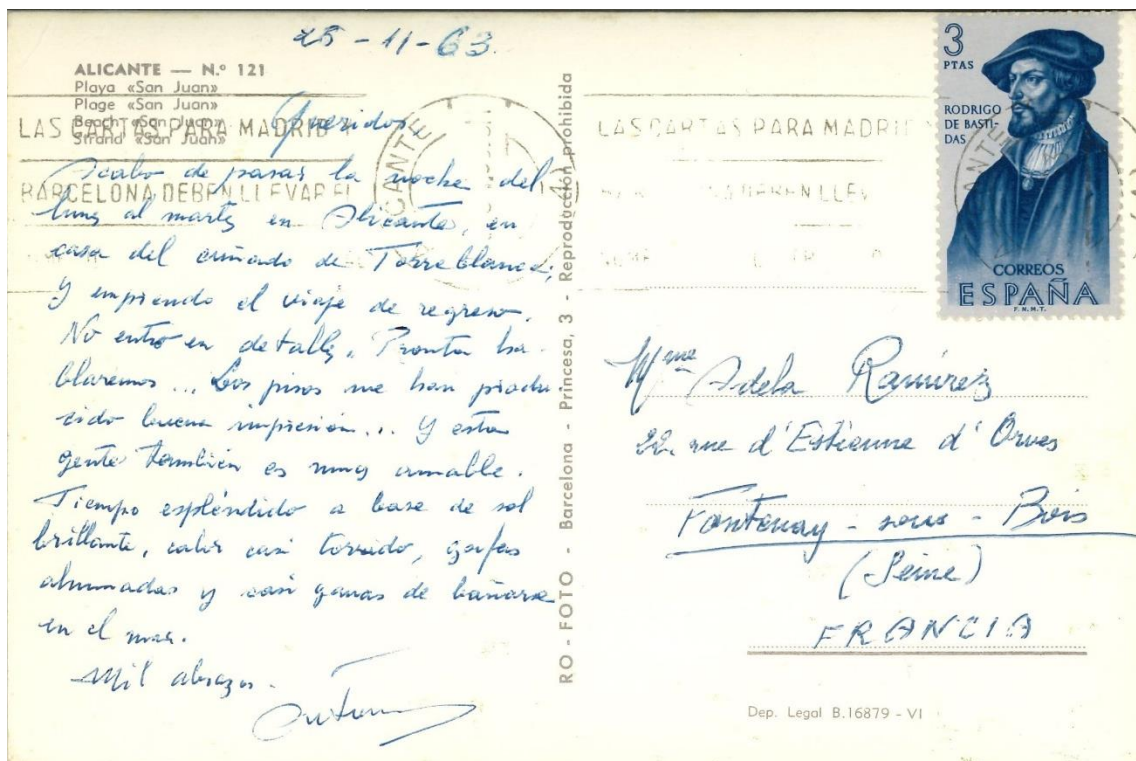 25-11-63.
ALICANTE — N.º 121
Playa «San Juan»
Plage «San Juan»
Beach «San Juan»
Strand «San Juan»
Queridos,
Acabo de pasar la noche del
lunes al martes en Alicante, en
casa del cuñado de Torreblanca,
y emprendo el viaje de regreso.
No entro en detalles. Pronto ha-
blaremos... Los pisos me han produ-
cido buena impresión... Y esta
gente también es muy amable.
Tiempo espléndido a base de sol
brillante, calor casi torrido, gafas
ahumadas y casi ganas de bañarse
en el mar.
Mil abrazos.
LAS CARTAS PARA MADRID
BARCELONA DEBEN LLEVAR EL
ALICANTE
RO - FOTO - Barcelona - Princesa, 3 - Reproducción prohibida
LAS CARTAS PARA MADRID
DEBEN LLEV
3
PTAS
RODRIGO
DE BASTI-
DAS
CORREOS
ESPAÑA
F.N.M.T.
Mme Adela Ramírez
22, rue d'Estienne d'Orves
Fontenay-sous-Bois
(Seine)
FRANCIA
Dep. Legal B.16879 - VI